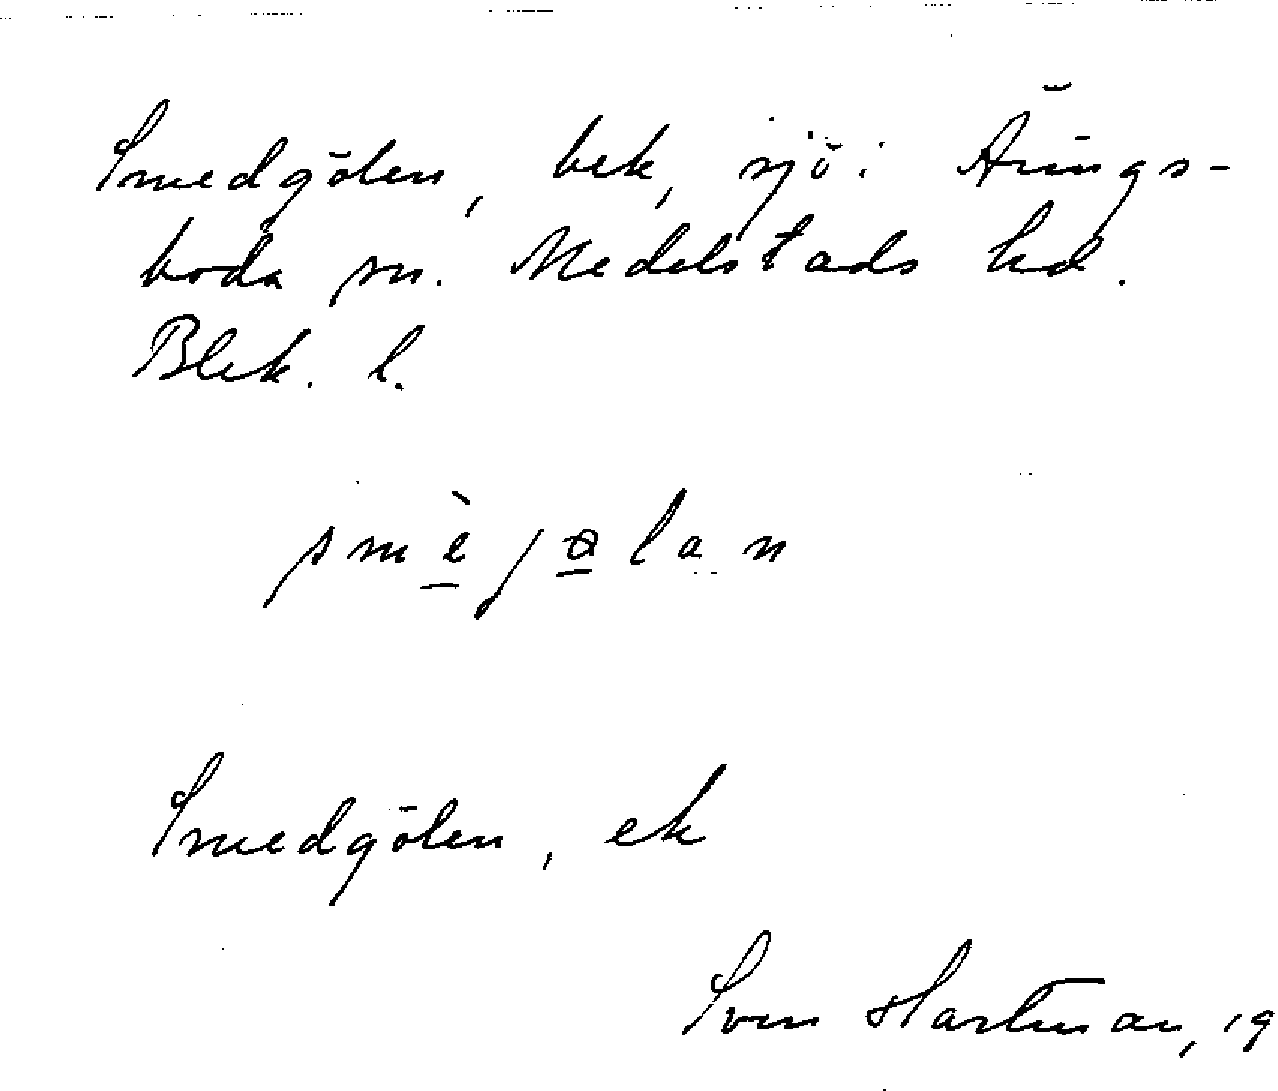 Smedgölen, bek, sjö i Ärings-
boda sn. Medelstads hd.
Blek. l.
smèjɵlan
Smedgölen, ek
Sven Hartman, 19